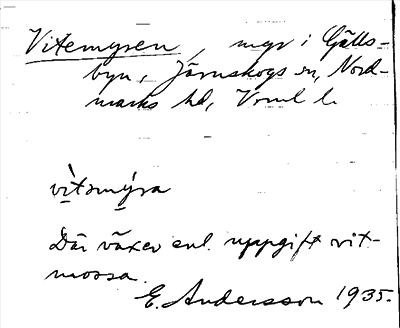 Vitemyren, myr i Gälls-
byn, Järnskogs sn, Nord-
marks hd, Vrml l.
vìtəmýra
Där växer enl. uppgift vit-
mossa.
E. Andersson 1935.